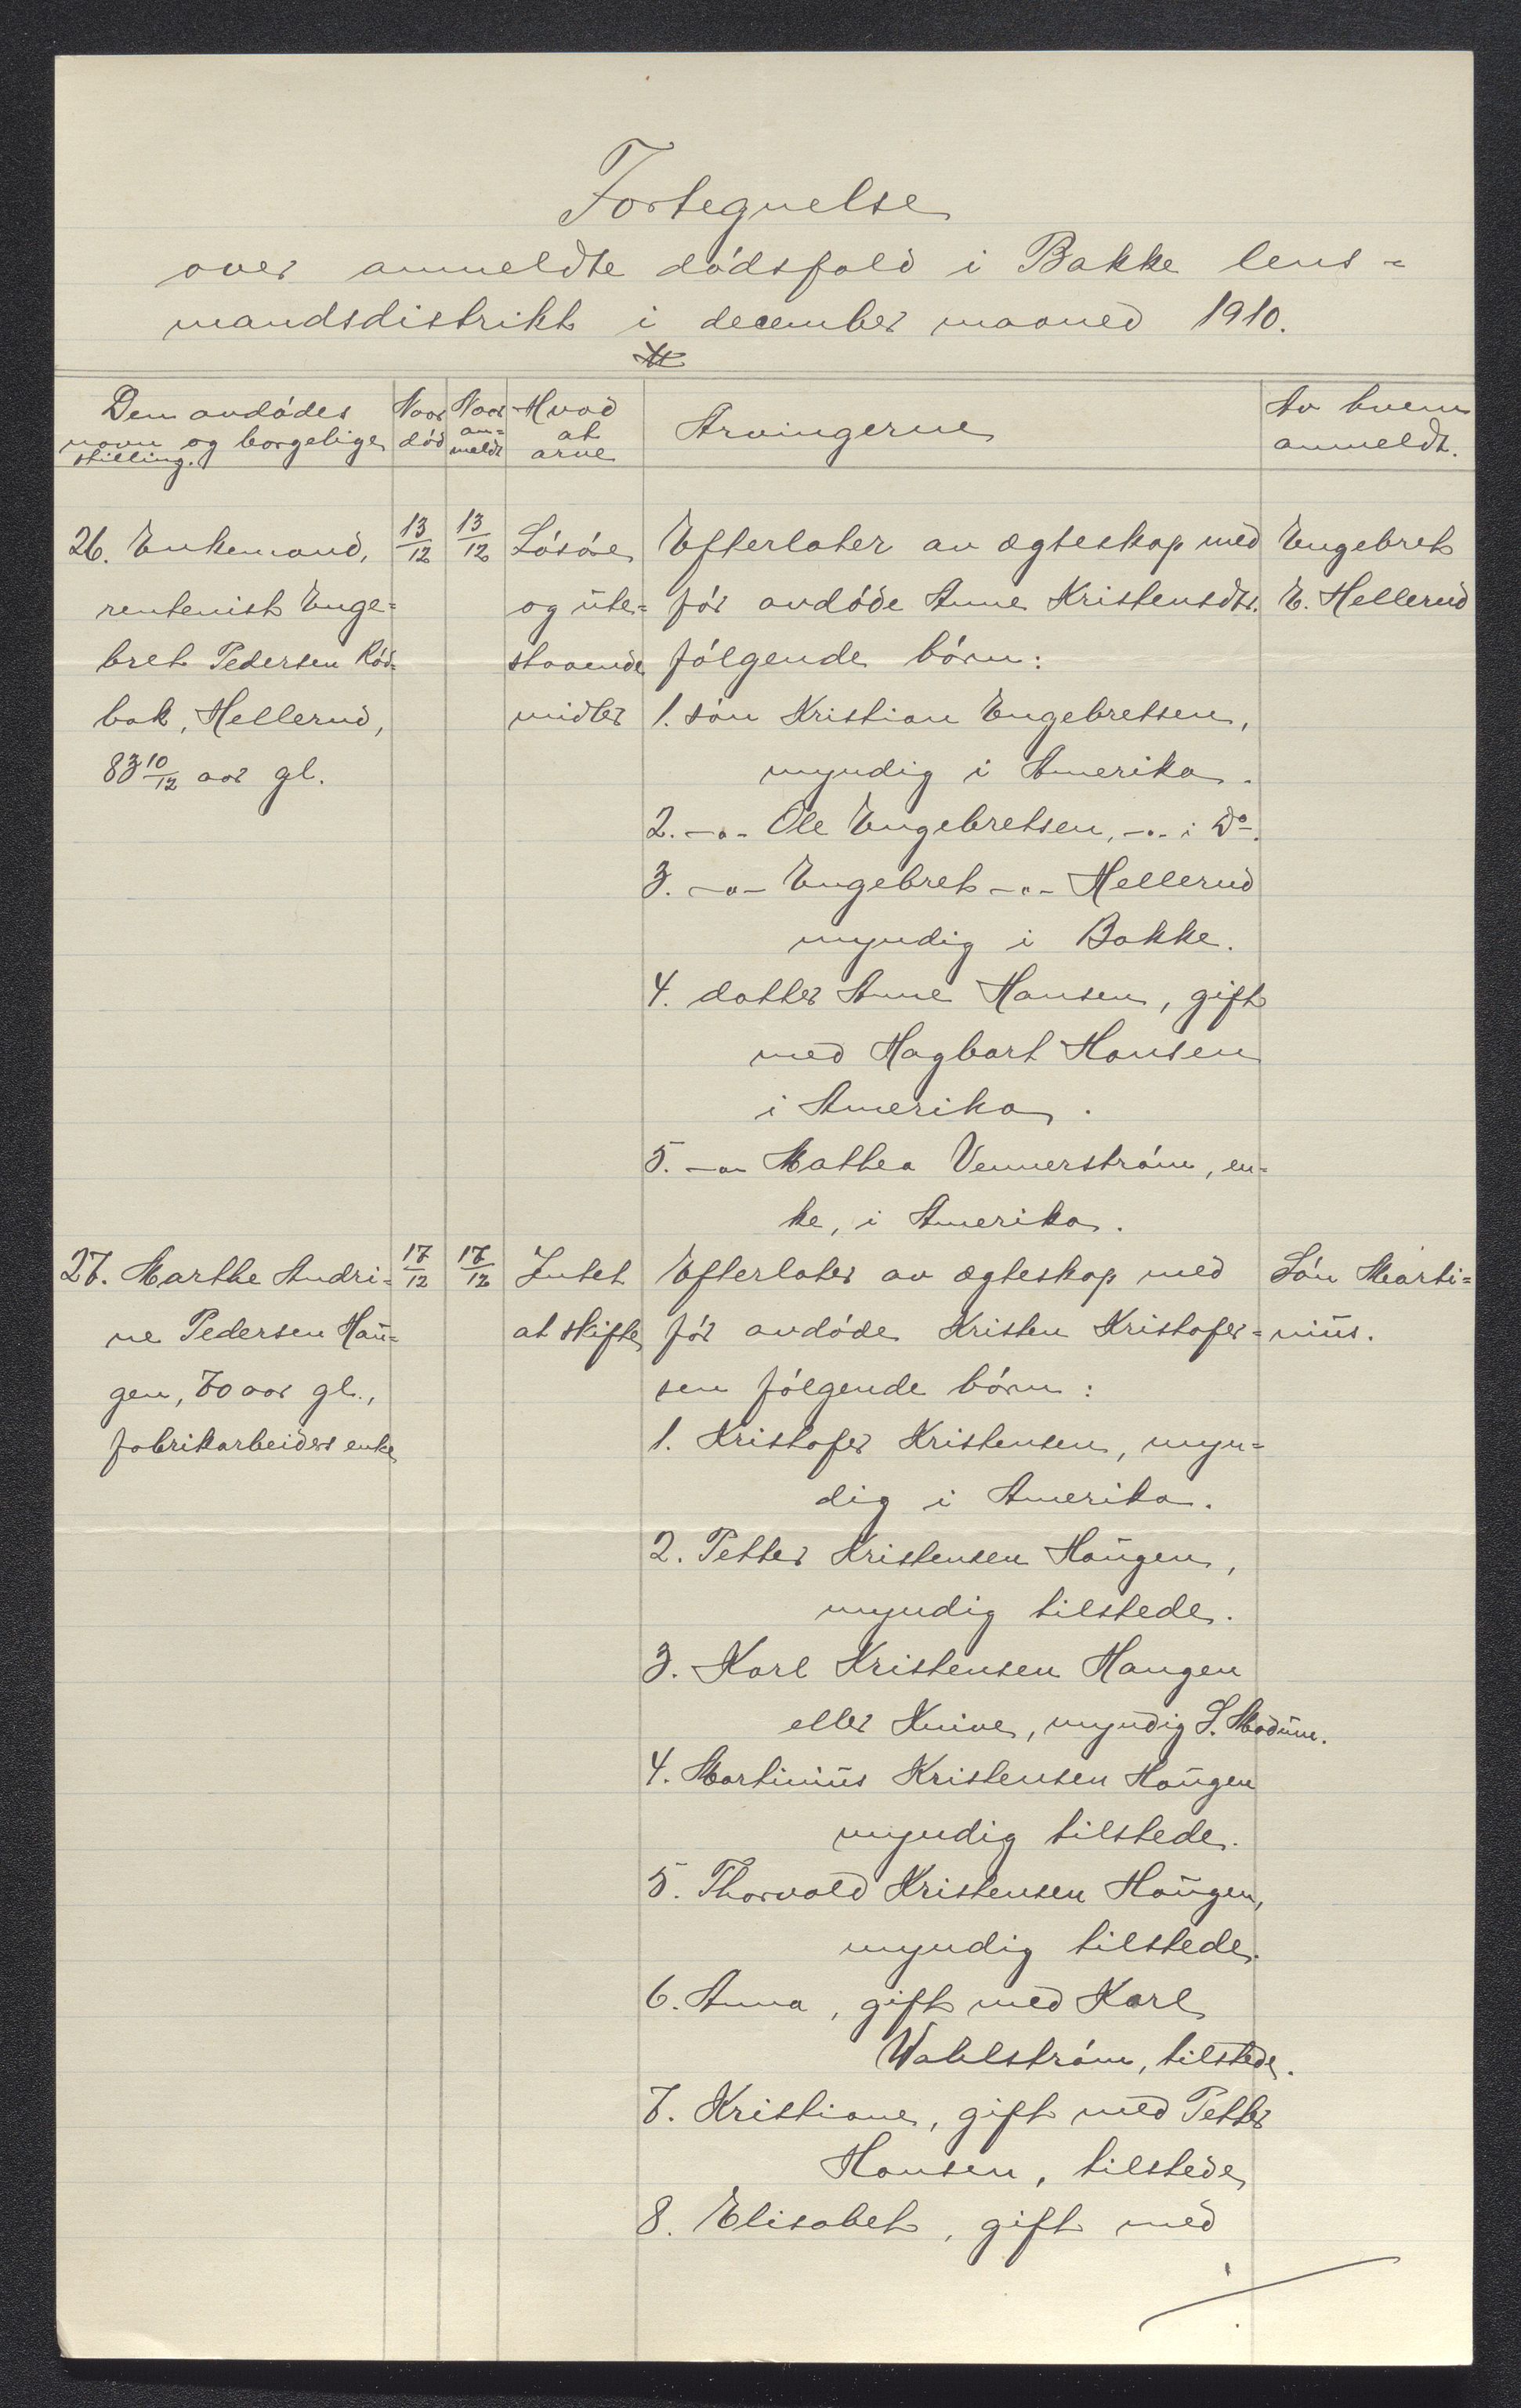 Fortegnelse
over anmeldte dødsfald i Bakke lens=
mandsdistrikt i december maaned 1910.
Den avdødes
navn og borgelige
stilling.
Naar
død
Naar
an=
meldt
Hvad
at
arve
Arvingerne
Av hvem
anmeldt.
26. Enkemand,
rentenist Enge=
bret Pedersen Rød=
bak, Hellerud,
83 10/12 aar gl.
13/12
13/12
Løsøre
og ute=
staaende
midler
Efterlater av ægteskap med
før avdøde Anne Kristensdtr.
følgende børn:
1. søn Kristian Engebretsen,
myndig i Amerika.
2. -"- Ole Engebretsen, -"- i Do.
3. -"- Engebret -"- Hellerud
myndig i Bakke.
4. datter Anne Hansen, gift
med Hagbart Hansen
i Amerika.
5. -"- Mathea Vennerstrøm, en=
ke, i Amerika.
Engebret
E. Hellerud
27. Marthe Andri=
ne Pedersen Hau=
gen, 70 aar gl.,
fabrikarbeiders enke
17/12
17/12
Intet
at skifte
Efterlater av ægteskap med
før avdøde Kristen Kristofer=
sen følgende børn:
1. Kristofer Kristensen, myn=
dig i Amerika.
2. Petter Kristensen Haugen,
myndig tilstede.
3. Karl Kristensen Haugen
eller Knive, myndig S. Modum.
4. Martinius Kristensen Haugen
myndig tilstede.
5. Thorvald Kristensen Haugen,
myndig tilstede.
6. Anna, gift med Karl
Wahlstrøm, tilstede.
7. Kristiane, gift med Petter
Hansen, tilstede
8. Elisabet, gift med
Søn Marti=
nius.